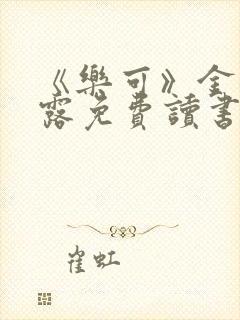 《樂可》金
露免費讀書
崔虹